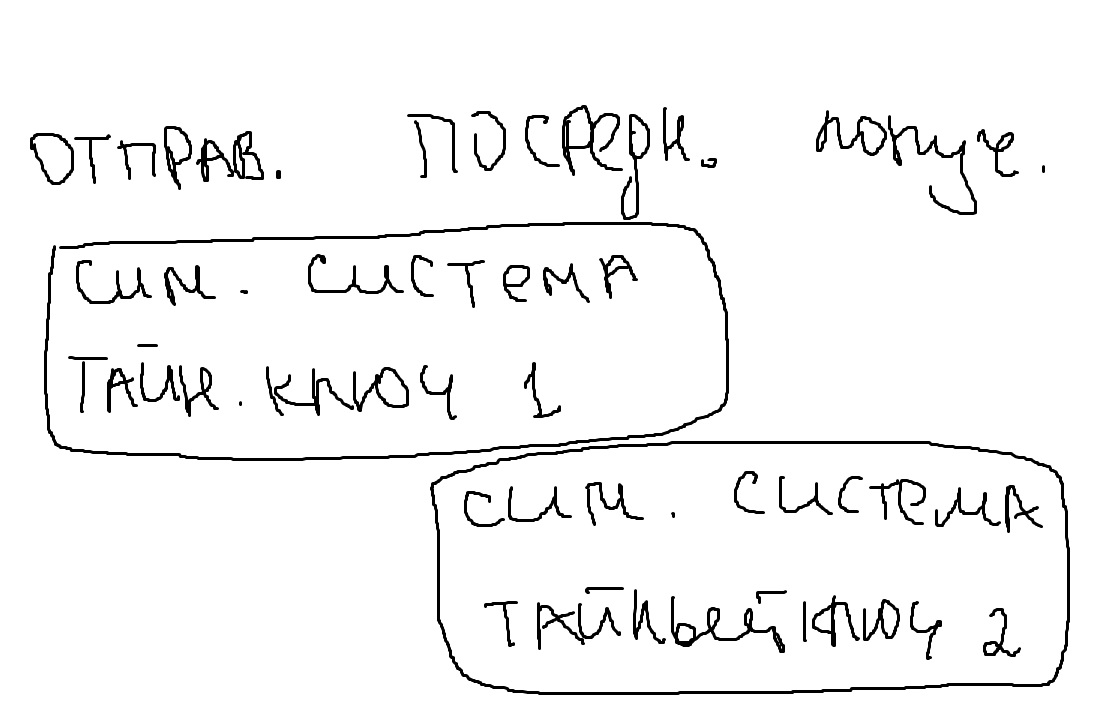 ОТПРАВ. ПОСРЕДН. получ.
СИМ. СИСТЕМА
ТАЙН. КЛЮЧ 1
СИМ. СИСТЕМА
ТАЙНЫЙ КЛЮЧ 2